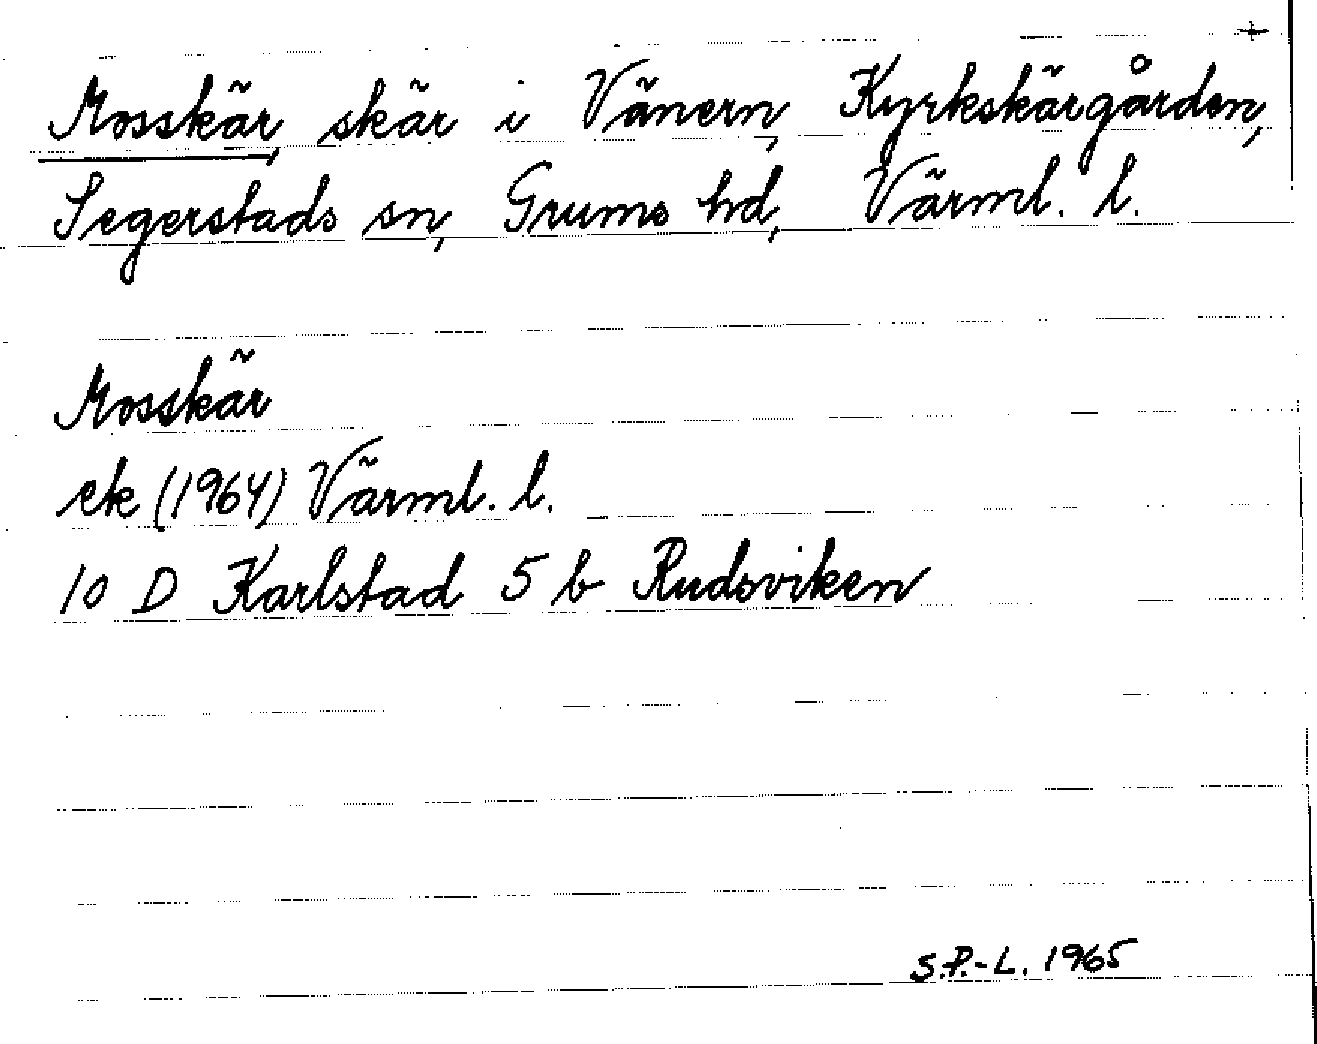 +
Mosskär, skär i Vänern, Kyrkskärgården,
Segerstads sn, Grums hd, Värml. l.
Mosskär
ek (1964) Värml. l.
10 D Karlstad 5 b Rudsviken
S.P.-L. 1965